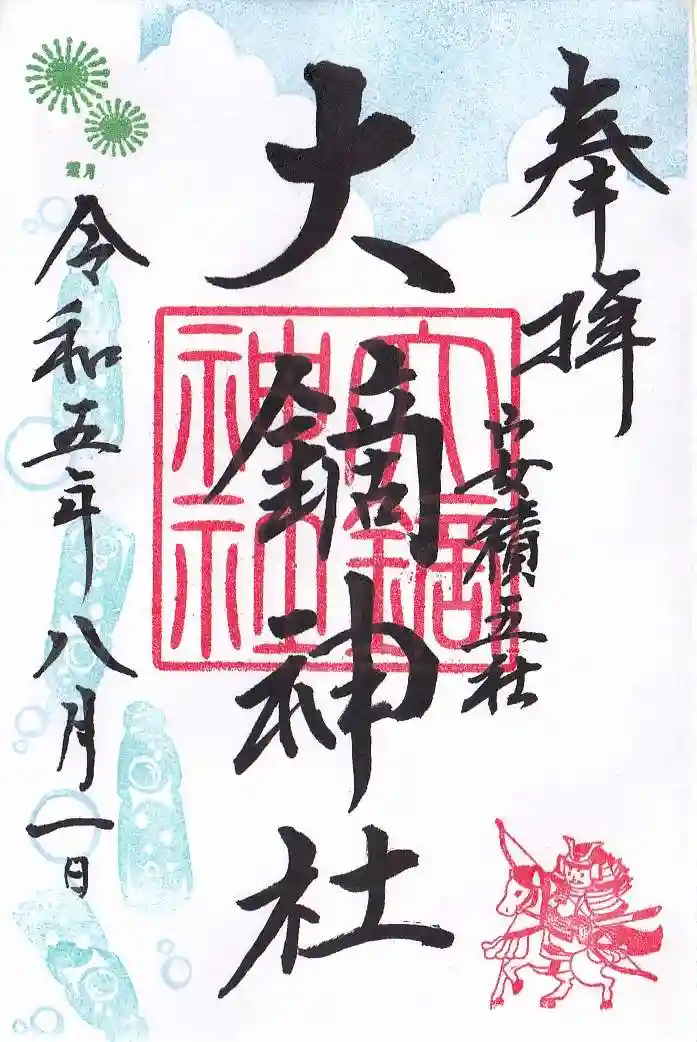 奉拝
安積五社
大鏑神社
大鏑
神社
令和五年八月一日